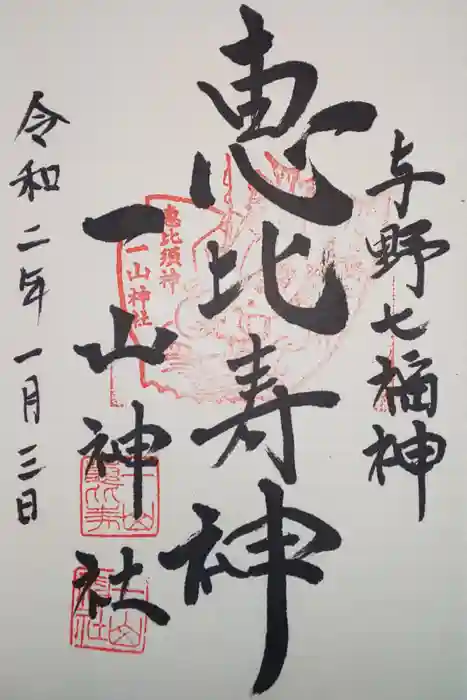 与野七福神
恵比寿神
一山神社
令和二年一月三日
恵比須神
一山神社